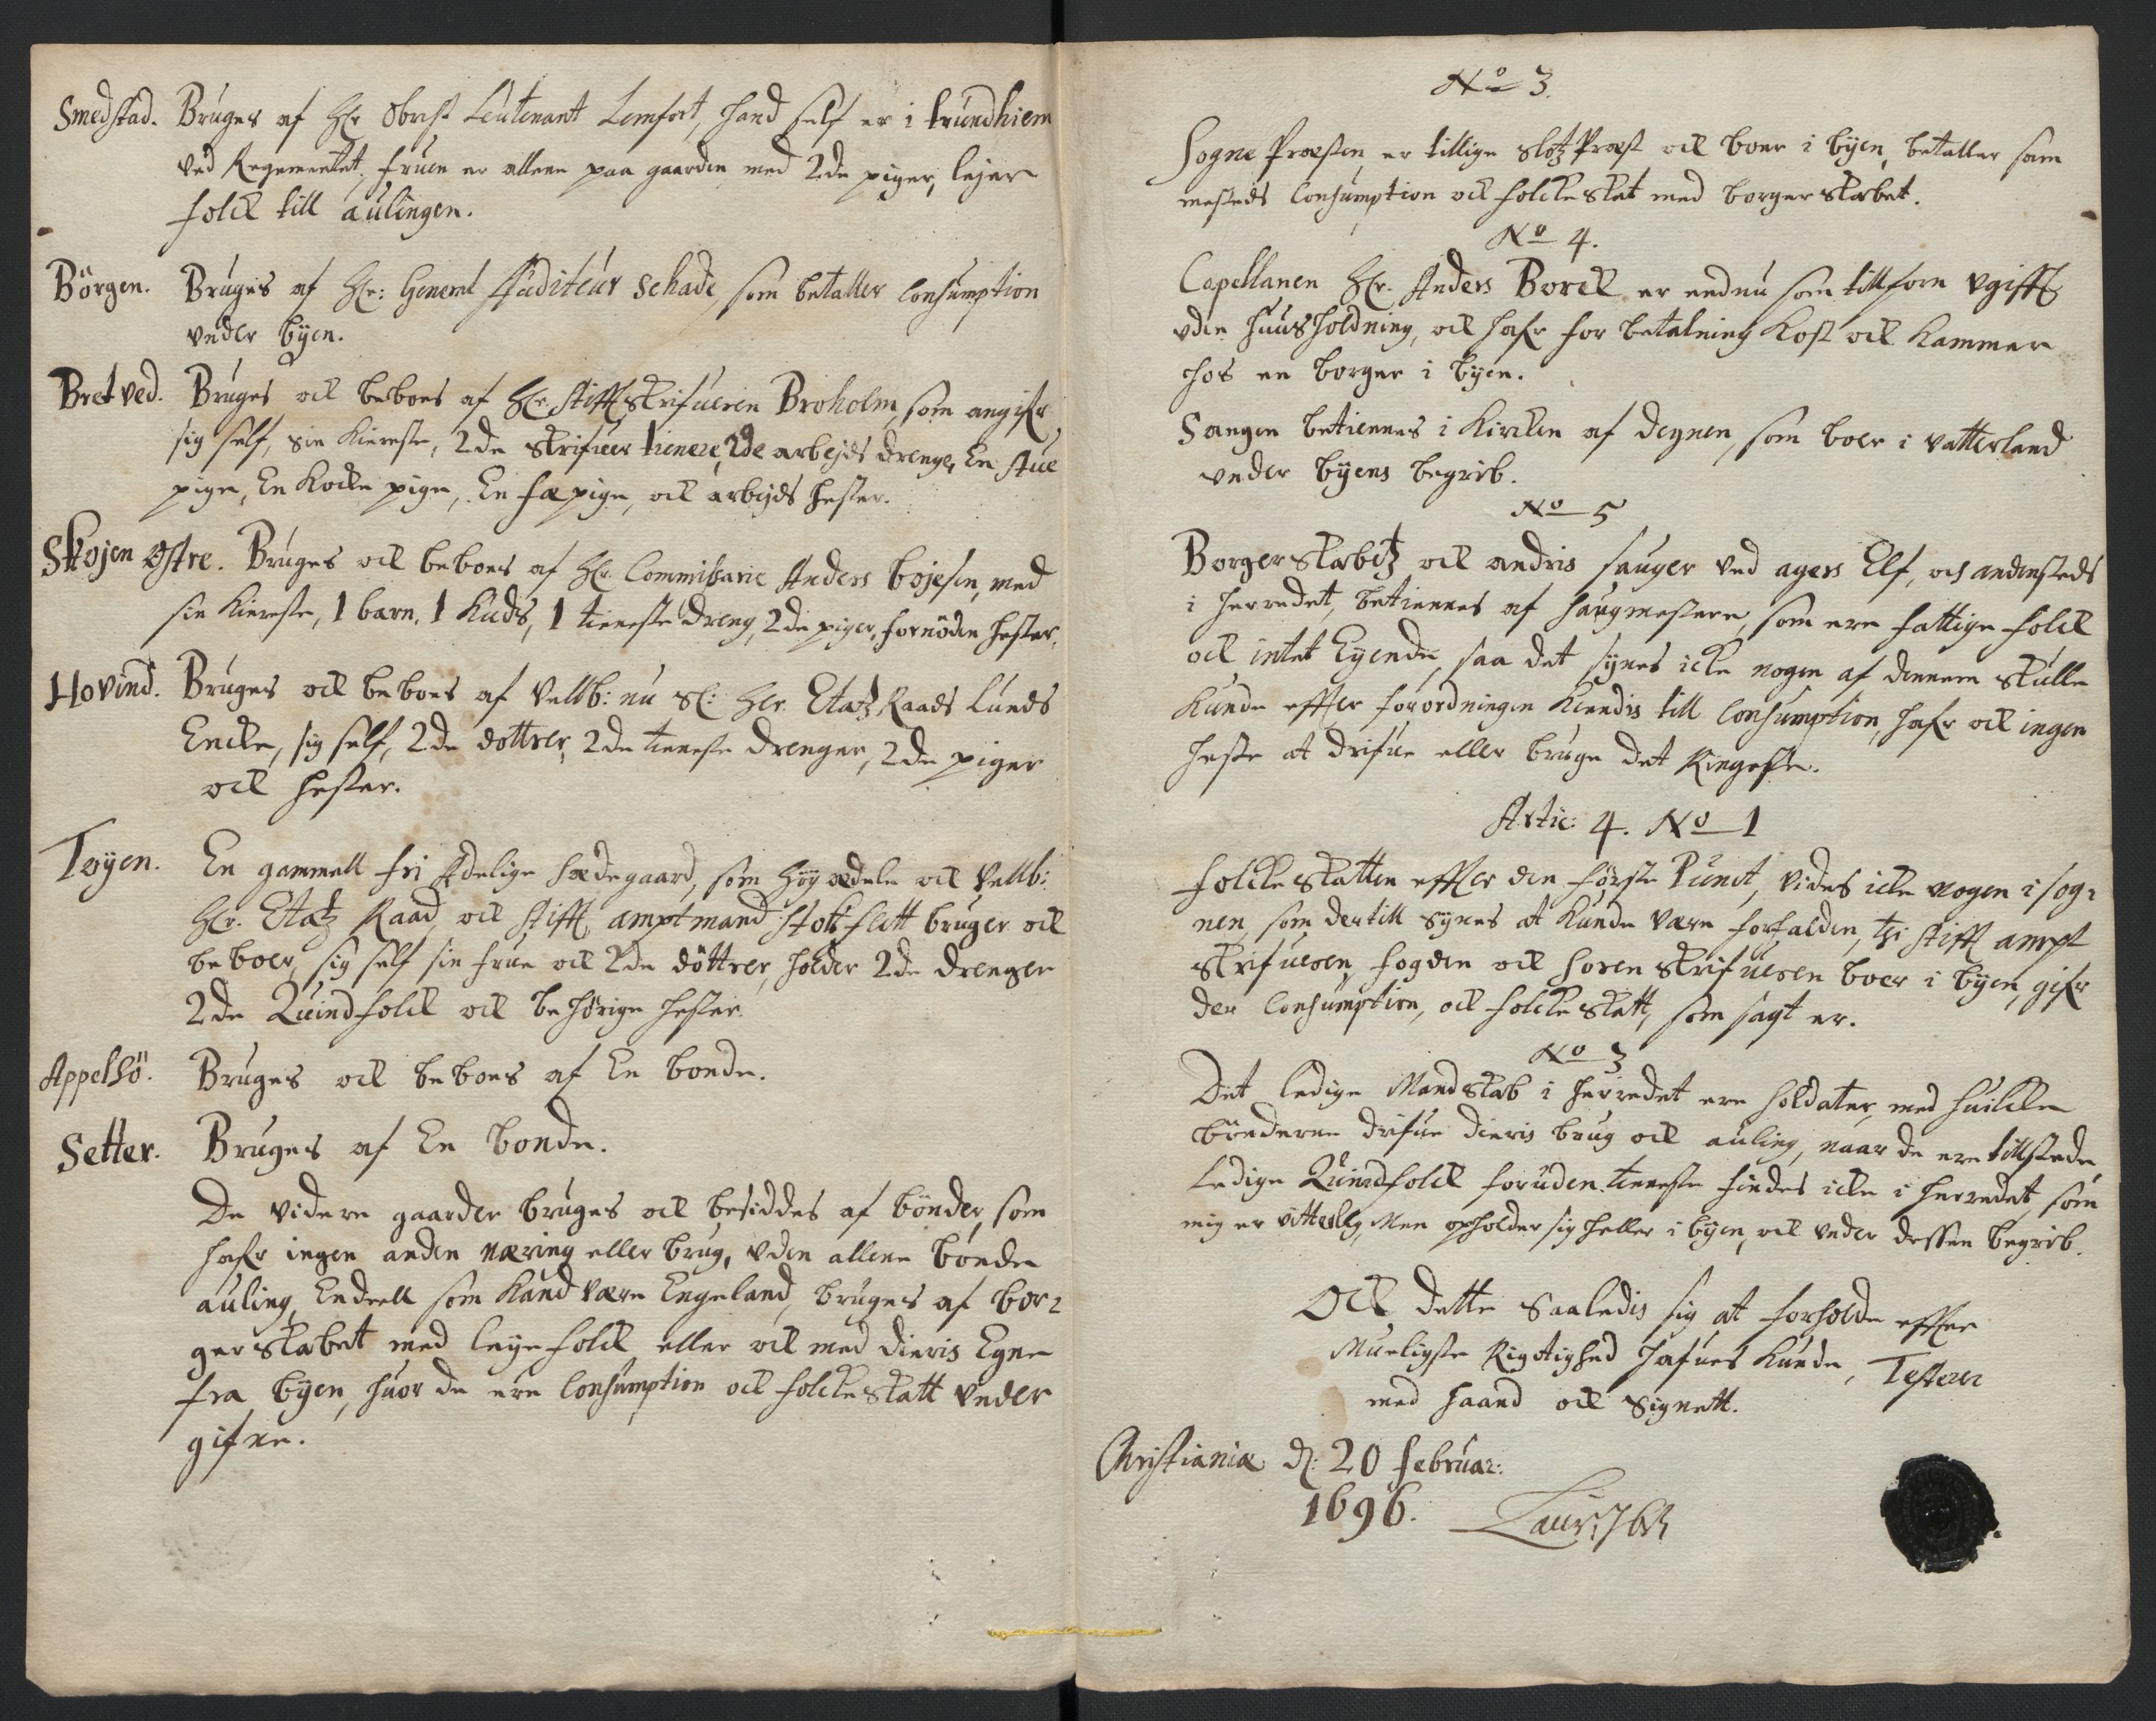 Smedstad. Bruges af Hr Obrist Leutenant Lemfort, hand self er i trundhiem
ved Regementet, fruen er allene paa gaarden med 2de piger, lejer
folck till aulingen.
Börgen. Bruges af Hr: General Auditeur Schade, som betaller Consumption
under byen.
Bretved. Bruges ock beboes af Hr. Stifft Skrifueren Broholm, som angifr
sig self, sin Kiereste, 2de Skrifuer tienere, 2de arbejds drenge, En stue
pige, En Kocke pige, En fæ pige, ock arbejds hester.
Skøjen østre. Bruges ock beboes af Hr. Commissarie Anders bojesen, med
sin Kiereste, 1 barn, 1 Kuds, 1 tieneste dreng, 2de piger, fornöden hester.
Hovind. Bruges ock beboes af Vellb: nu Sl: Hr. Etatz Raads Lunds
Encke, sig self, 2de dottrer, 2de tieneste drenger, 2de piger
ock hester.
Tøyen. En gammell fri Adelige Sædegaard, som Høyædele ock Vellb:
Hr. Etatz Raad, ock Stifft amptmand Stokflett bruger ock
beboer, sig self sin frue ock 2de döttrer, holder 2de drenger
2de Quindfolck ock behörige hester.
Appelsö. Bruges ock beboes af En bonde.
Setter. Bruges af En bonde.
De videre gaarder bruges ock besiddes af bönder, som
hafr ingen anden næring eller brug, uden allene bonde
auling, Endeell som Kand være Engeland, bruges af bor-
gerskabet med leyefolck eller ock med dieris Egne
fra byen, huor de ere Consumption ock folckeskatt under
gifne.
No 3.
Sogne Præsten er tillige Slotz Præst ock boer i byen, betaller som
mesteds Consumption ock folckeskat med borgerskabet.
No 4.
Capellanen Hr. Anders Borck er endnu som tillforn ugifft
uden huusholdning, ock hafr for betalning Kost ock Kammer
hos en borger i byen.
Sangen betiennes i Kircken af degnen, som boer i vatterland
under byens begrib.
No 5
Borgerskabetz ock andris sauger ved agers Elf, och andensteds
i herredet, betiennes af saugmestere, som ere fattige folck
ock intet Eyende, saa det synes icke nogen af dennem skulle
Kunde effter forordningen Kiendis till Consumption, hafr ock ingen
heste at drifue eller bruge det Ringeste.
Artic: 4. No 1
folckeskatten effter den første Punct, vides icke nogen i sog-
nen, som dertill synes at Kunde være forfalden, thi Stifft ampt
Skrifueren, fogden ock Sorenskrifueren boer i byen, gifr
der Consumption, ock folckeskatt, som sagt er.
No 3
Det ledige Mandskab i herredet ere soldater, med huilcke
bönderne drifue dieris brug ock auling, naar de ere tillstede
Ledige Quindfolck foruden tieneste findes icke i herredet, som
mig er vitterlig, Men opholder sig heller i byen, ock under dessen begrib.
Ock dette Saaledis sig at forholde effter
Mueligste Rigtighed hafues Kunde, Testerer
med haand ock Signett.
Christiania d: 20 februar:
1696.